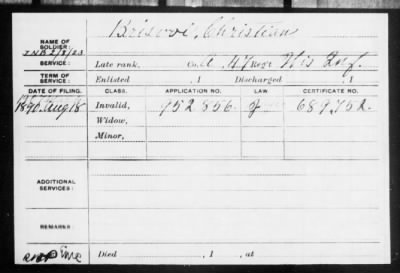 NAME OF SOLDIER: Brisvoi, Christian
SERVICE: Late rank, Co. A, 47 Reg't Wis Inf.
TERM OF SERVICE: Enlisted , 1 Discharged , 1
DATE OF FILING. CLASS. APPLICATION NO. LAW. CERTIFICATE NO.
1890. Aug 18 Invalid, 952856. J 689752.
Widow,
Minor,
ADDITIONAL SERVICES:
REMARKS:
Died , 1 , at